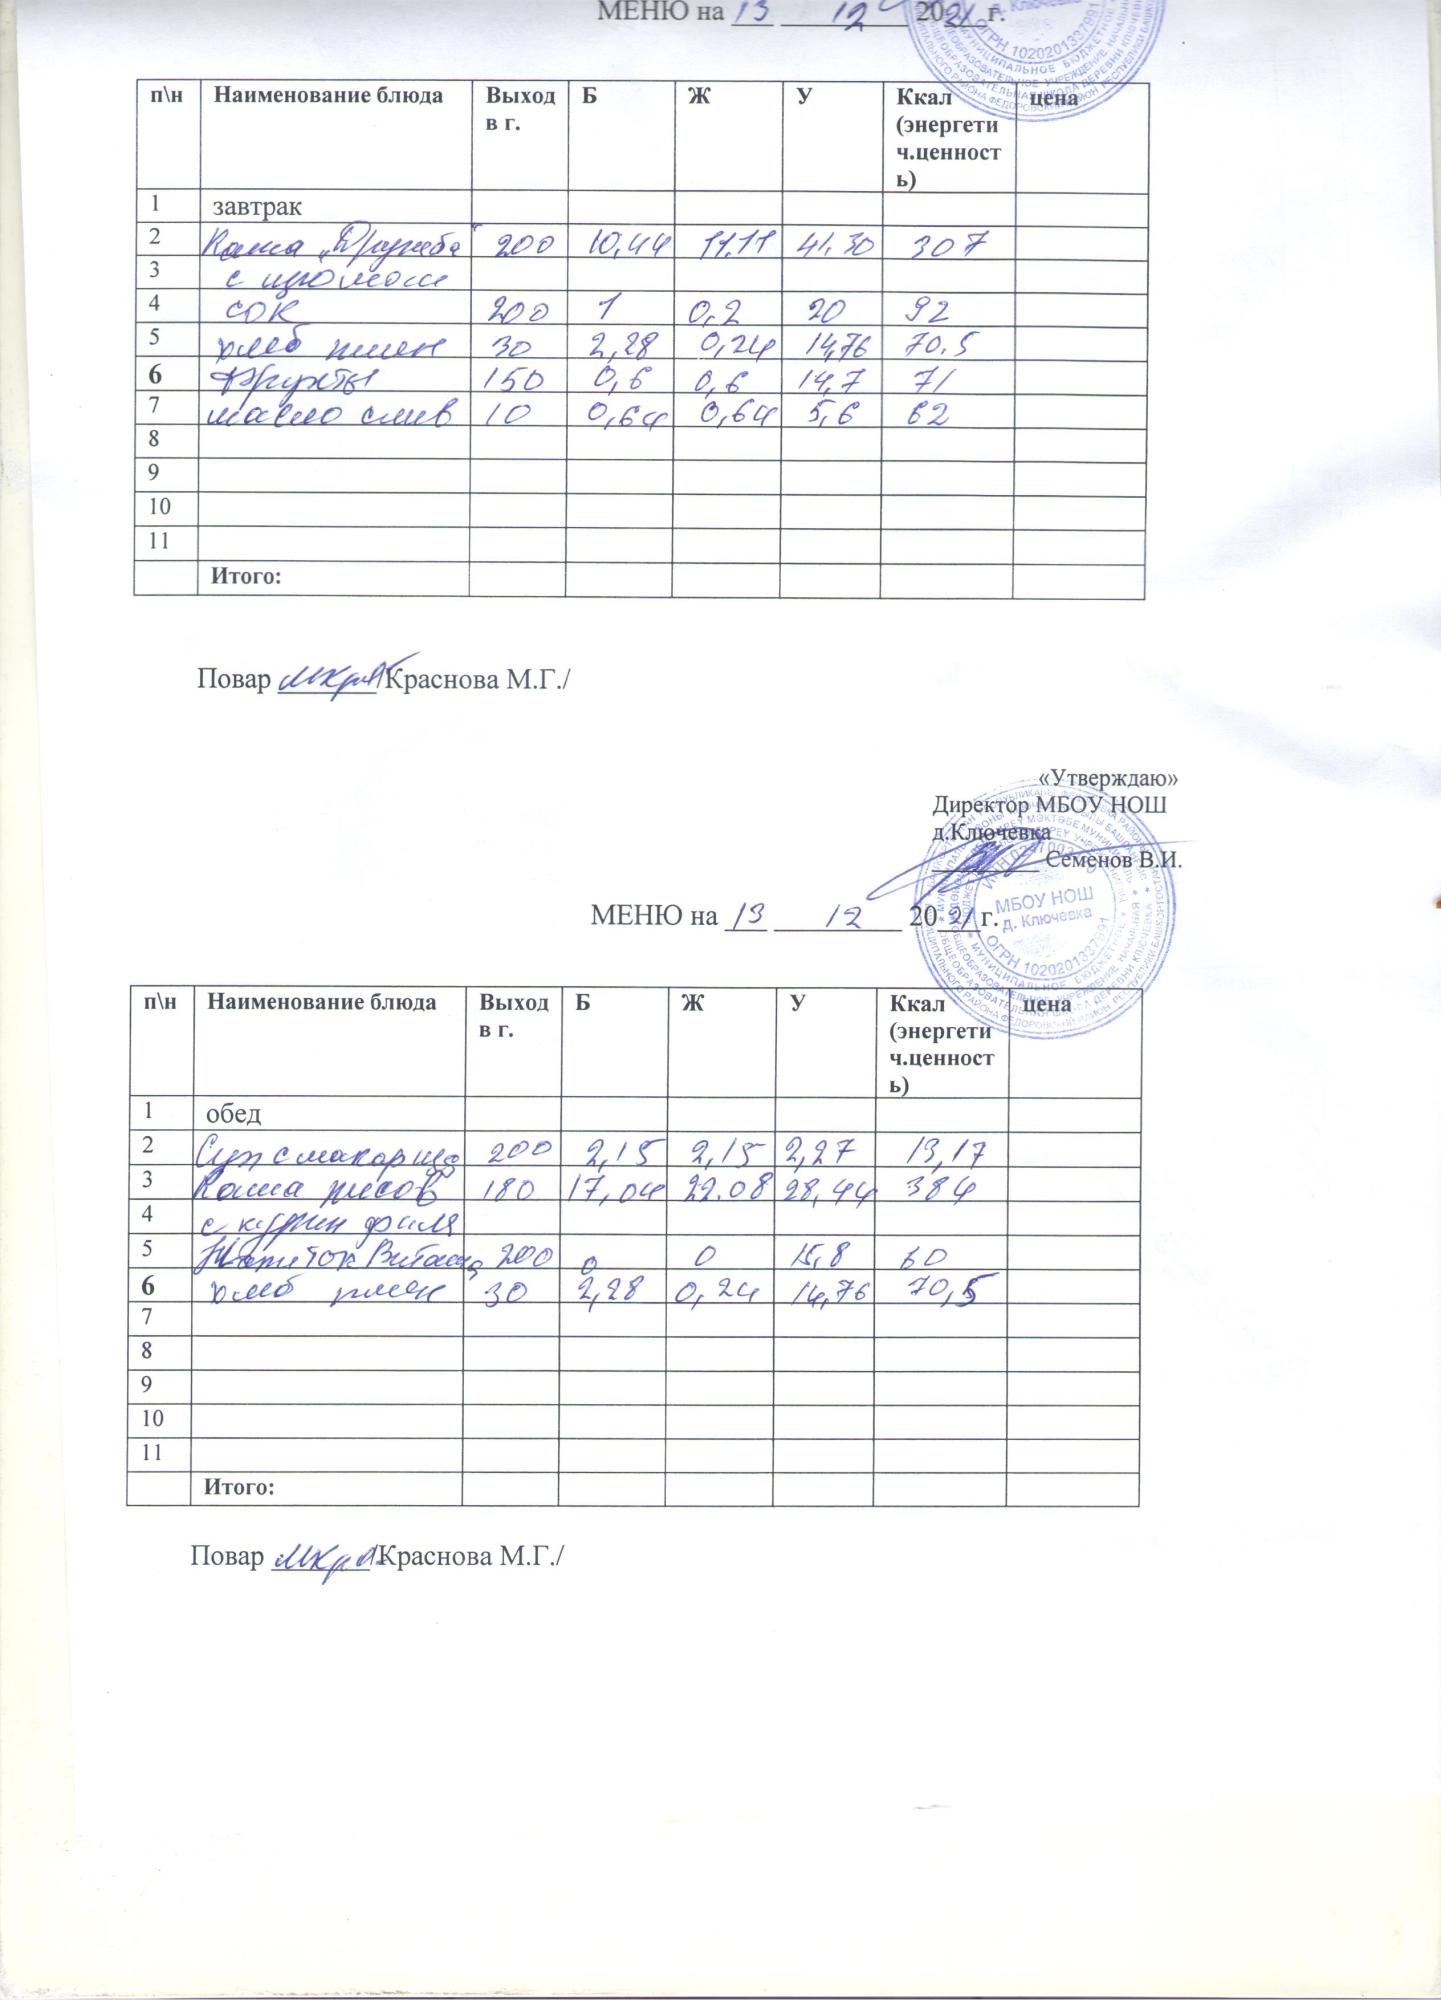 МЕНЮ на 13 12 2021 г.
п\н Наименование блюда Выход в г. Б Ж У Ккал (энергетич.ценность) цена
1 завтрак
2 Каша „Дружба" 200 10,44 11.11 41.30 307
3 с изюмом
4 сок 200 1 0,2 20 92
5 хлеб пшен 30 2,28 0,24 14,76 70.5
6 Фрукты 150 0,6 0,6 14,7 71
7 масло слив 10 0,64 0,64 5,6 62
8
9
10
11
Итого:
Повар /Краснова М.Г./
«Утверждаю»
Директор МБОУ НОШ
д.Ключевка
Семенов В.И.
МБОУ НОШ
д. Ключевка
ОГРН 1020201337991
МЕНЮ на 13 12 2021 г.
п\н Наименование блюда Выход в г. Б Ж У Ккал (энергетич.ценность) цена
1 обед
2 Суп с макар 200 2,15 2,15 2,27 13,17
3 Каша рисов 180 17,04 22.08 28,44 384
4 с курин филе
5 Напиток 200 0 0 15,8 60
6 хлеб пшен 30 2,28 0,24 14,76 70,5
7
8
9
10
11
Итого:
Повар /Краснова М.Г./